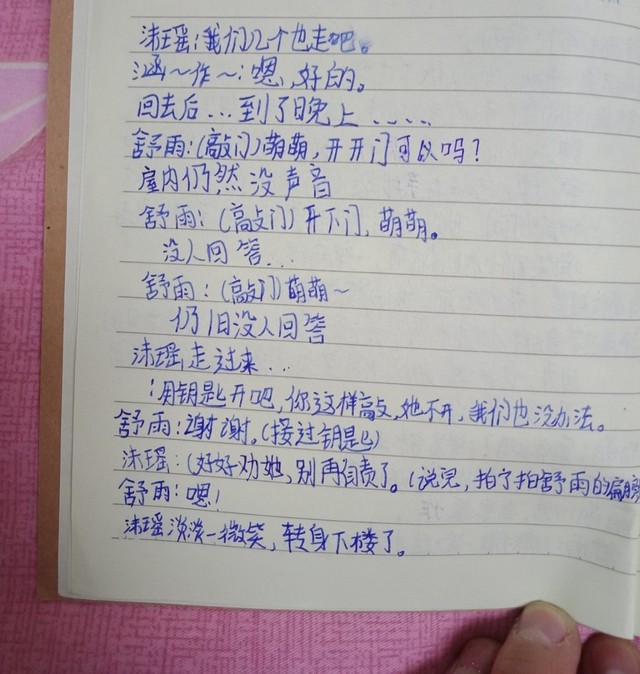 沫瑶:我们几个也走吧。
涵~作~:嗯,好的。
回去后...到了晚上.....
舒雨:(敲门)萌萌,开开门可以吗?
屋内仍然没声音
舒雨:(敲门)开下门,萌萌。
没人回答...
舒雨:(敲门)萌萌~
仍旧没人回答
沫瑶走过来...
:用钥匙开吧,你这样敲,她不开,我们也没办法。
舒雨:谢谢,(接过钥匙)
沫瑶:(好好劝她,别再自责了。(说完,拍了拍舒雨的肩膀
舒雨:嗯!
沫瑶淡淡一微笑,转身下楼了。